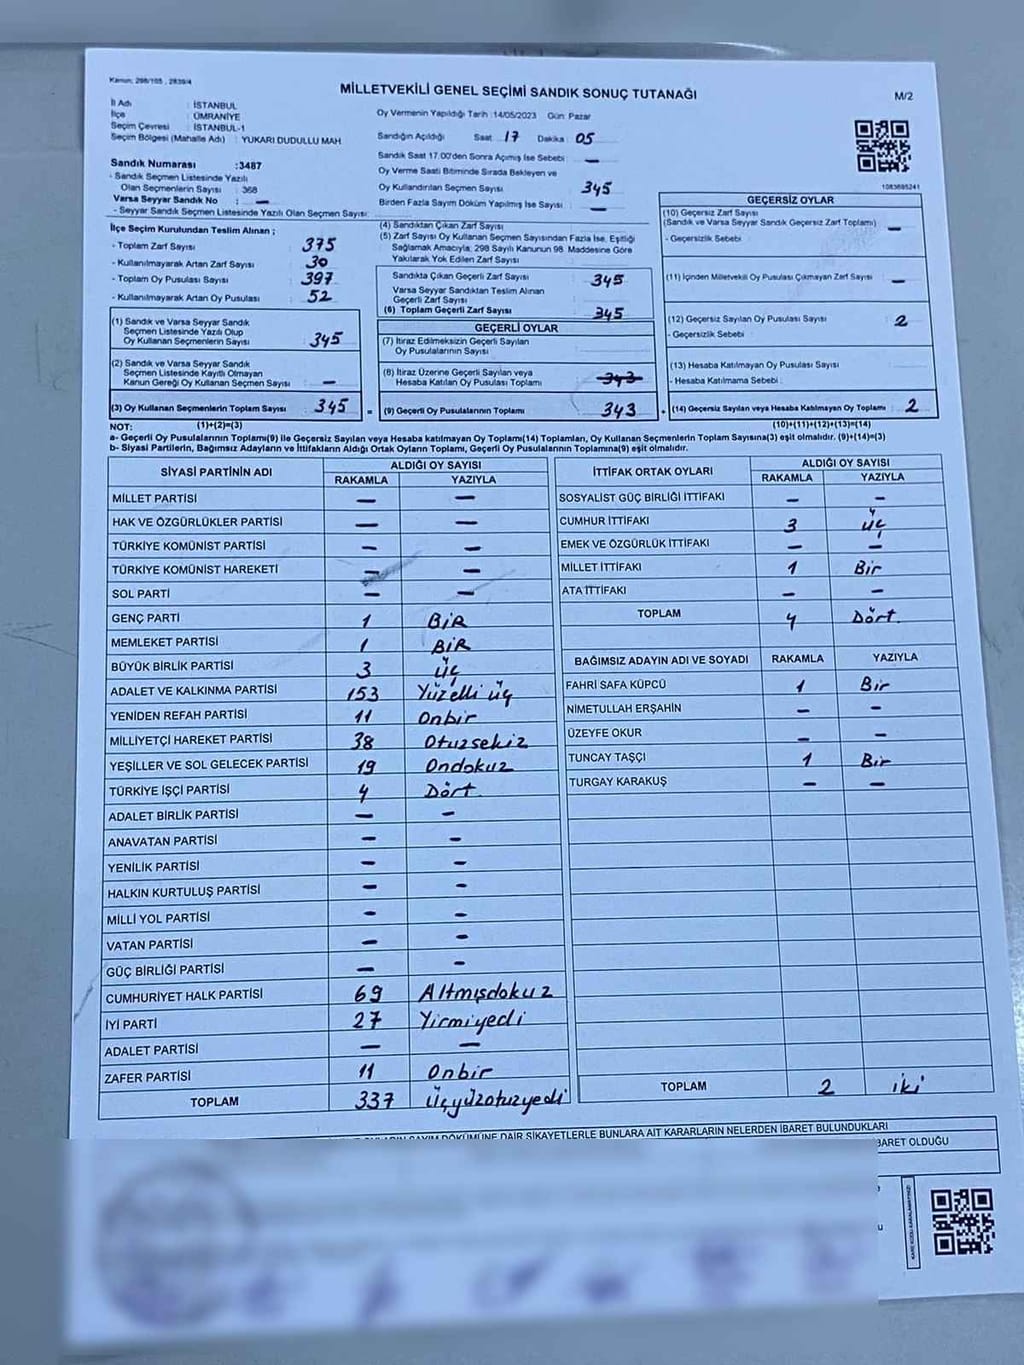 Kanun: 298/105 , 2839/4
MİLLETVEKİLİ GENEL SEÇİMİ SANDIK SONUÇ TUTANAĞI
M/2
İl Adı : İSTANBUL
İlçe : ÜMRANİYE
Seçim Çevresi : İSTANBUL-1
Seçim Bölgesi (Mahalle Adı) : YUKARI DUDULLU MAH
Sandık Numarası :3487
- Sandık Seçmen Listesinde Yazılı
Olan Seçmenlerin Sayısı : 368
Varsa Seyyar Sandık No : —
- Seyyar Sandık Seçmen Listesinde Yazılı Olan Seçmen Sayısı:
Oy Vermenin Yapıldığı Tarih :14/05/2023 Gün: Pazar
Sandığın Açıldığı Saat : 17 Dakika : 05
Sandık Saat 17.00'den Sonra Açımış İse Sebebi : —
Oy Verme Saati Bitiminde Sırada Bekleyen ve
Oy Kullandırılan Seçmen Sayısı : 345
Birden Fazla Sayım Döküm Yapılmış İse Sayısı : —
1083685241
İlçe Seçim Kurulundan Teslim Alınan ;
- Toplam Zarf Sayısı : 375
- Kullanılmayarak Artan Zarf Sayısı : 30
- Toplam Oy Pusulası Sayısı : 397
- Kullanılmayarak Artan Oy Pusulası : 52
(1) Sandık ve Varsa Seyyar Sandık
Seçmen Listesinde Yazılı Olup
Oy Kullanan Seçmenlerin Sayısı : 345
(2) Sandık ve Varsa Seyyar Sandık
Seçmen Listesinde Kayıtlı Olmayan
Kanun Gereği Oy Kullanan Seçmen Sayısı : —
(3) Oy Kullanan Seçmenlerin Toplam Sayısı : 345
(1)+(2)=(3)
(4) Sandıktan Çıkan Zarf Sayısı :
(5) Zarf Sayısı Oy Kullanan Seçmen Sayısından Fazla İse, Eşitliği
Sağlamak Amacıyla; 298 Sayılı Kanunun 98. Maddesine Göre
Yakılarak Yok Edilen Zarf Sayısı :
Sandıkta Çıkan Geçerli Zarf Sayısı : 345
Varsa Seyyar Sandıktan Teslim Alınan
Geçerli Zarf Sayısı :
(6) Toplam Geçerli Zarf Sayısı : 345
GEÇERLİ OYLAR
(7) İtiraz Edilmeksizin Geçerli Sayılan
Oy Pusulalarının Sayısı :
(8) İtiraz Üzerine Geçerli Sayılan veya
Hesaba Katılan Oy Pusulası Toplamı : 343
= (9) Geçerli Oy Pusulalarının Toplamı : 343
GEÇERSİZ OYLAR
(10) Geçersiz Zarf Sayısı
(Sandık ve Varsa Seyyar Sandık Geçersiz Zarf Toplamı) : —
- Geçersizlik Sebebi :
(11) İçinden Milletvekili Oy Pusulası Çıkmayan Zarf Sayısı : —
(12) Geçersiz Sayılan Oy Pusulası Sayısı : 2
- Geçersizlik Sebebi :
(13) Hesaba Katılmayan Oy Pusulası Sayısı :
- Hesaba Katılmama Sebebi :
+ (14) Geçersiz Sayılan veya Hesaba Katılmayan Oy Toplamı : 2
(10)+(11)+(12)+(13)=(14)
NOT:
a- Geçerli Oy Pusulalarının Toplamı(9) ile Geçersiz Sayılan veya Hesaba katılmayan Oy Toplamı(14) Toplamları, Oy Kullanan Seçmenlerin Toplam Sayısına(3) eşit olmalıdır. (9)+(14)=(3)
b- Siyasi Partilerin, Bağımsız Adayların ve İttifakların Aldığı Ortak Oyların Toplamı, Geçerli Oy Pusulalarının Toplamına(9) eşit olmalıdır.
SİYASİ PARTİNİN ADI ALDIĞI OY SAYISI
RAKAMLA YAZIYLA
MİLLET PARTİSİ — —
HAK VE ÖZGÜRLÜKLER PARTİSİ — —
TÜRKİYE KOMÜNİST PARTİSİ — —
TÜRKİYE KOMÜNİST HAREKETİ — —
SOL PARTİ — —
GENÇ PARTİ 1 BİR
MEMLEKET PARTİSİ 1 BİR
BÜYÜK BİRLİK PARTİSİ 3 üç
ADALET VE KALKINMA PARTİSİ 153 Yüzelli üç
YENİDEN REFAH PARTİSİ 11 Onbir
MİLLİYETÇİ HAREKET PARTİSİ 38 Otuzsekiz
YEŞİLLER VE SOL GELECEK PARTİSİ 19 Ondokuz
TÜRKİYE İŞÇİ PARTİSİ 4 Dört
ADALET BİRLİK PARTİSİ — —
ANAVATAN PARTİSİ — —
YENİLİK PARTİSİ — —
HALKIN KURTULUŞ PARTİSİ — —
MİLLİ YOL PARTİSİ — —
VATAN PARTİSİ — —
GÜÇ BİRLİĞİ PARTİSİ — —
CUMHURİYET HALK PARTİSİ 69 Altmışdokuz
İYİ PARTİ 27 Yirmiyedi
ADALET PARTİSİ — —
ZAFER PARTİSİ 11 Onbir
TOPLAM 337 üçyüzotuzyedi
İTTİFAK ORTAK OYLARI ALDIĞI OY SAYISI
RAKAMLA YAZIYLA
SOSYALİST GÜÇ BİRLİĞİ İTTİFAKI — —
CUMHUR İTTİFAKI 3 üç
EMEK VE ÖZGÜRLÜK İTTİFAKI — —
MİLLET İTTİFAKI 1 Bir
ATA İTTİFAKI — —
TOPLAM 4 Dört
BAĞIMSIZ ADAYIN ADI VE SOYADI RAKAMLA YAZIYLA
FAHRİ SAFA KÜPCÜ 1 Bir
NİMETULLAH ERŞAHİN — —
ÜZEYFE OKUR — —
TUNCAY TAŞÇI 1 Bir
TURGAY KARAKUŞ — —
TOPLAM 2 iki
SAYIM DÖKÜMÜNE DAİR ŞİKAYETLERLE BUNLARA AİT KARARLARIN NELERDEN İBARET BULUNDUKLARI
BARET OLDUĞU